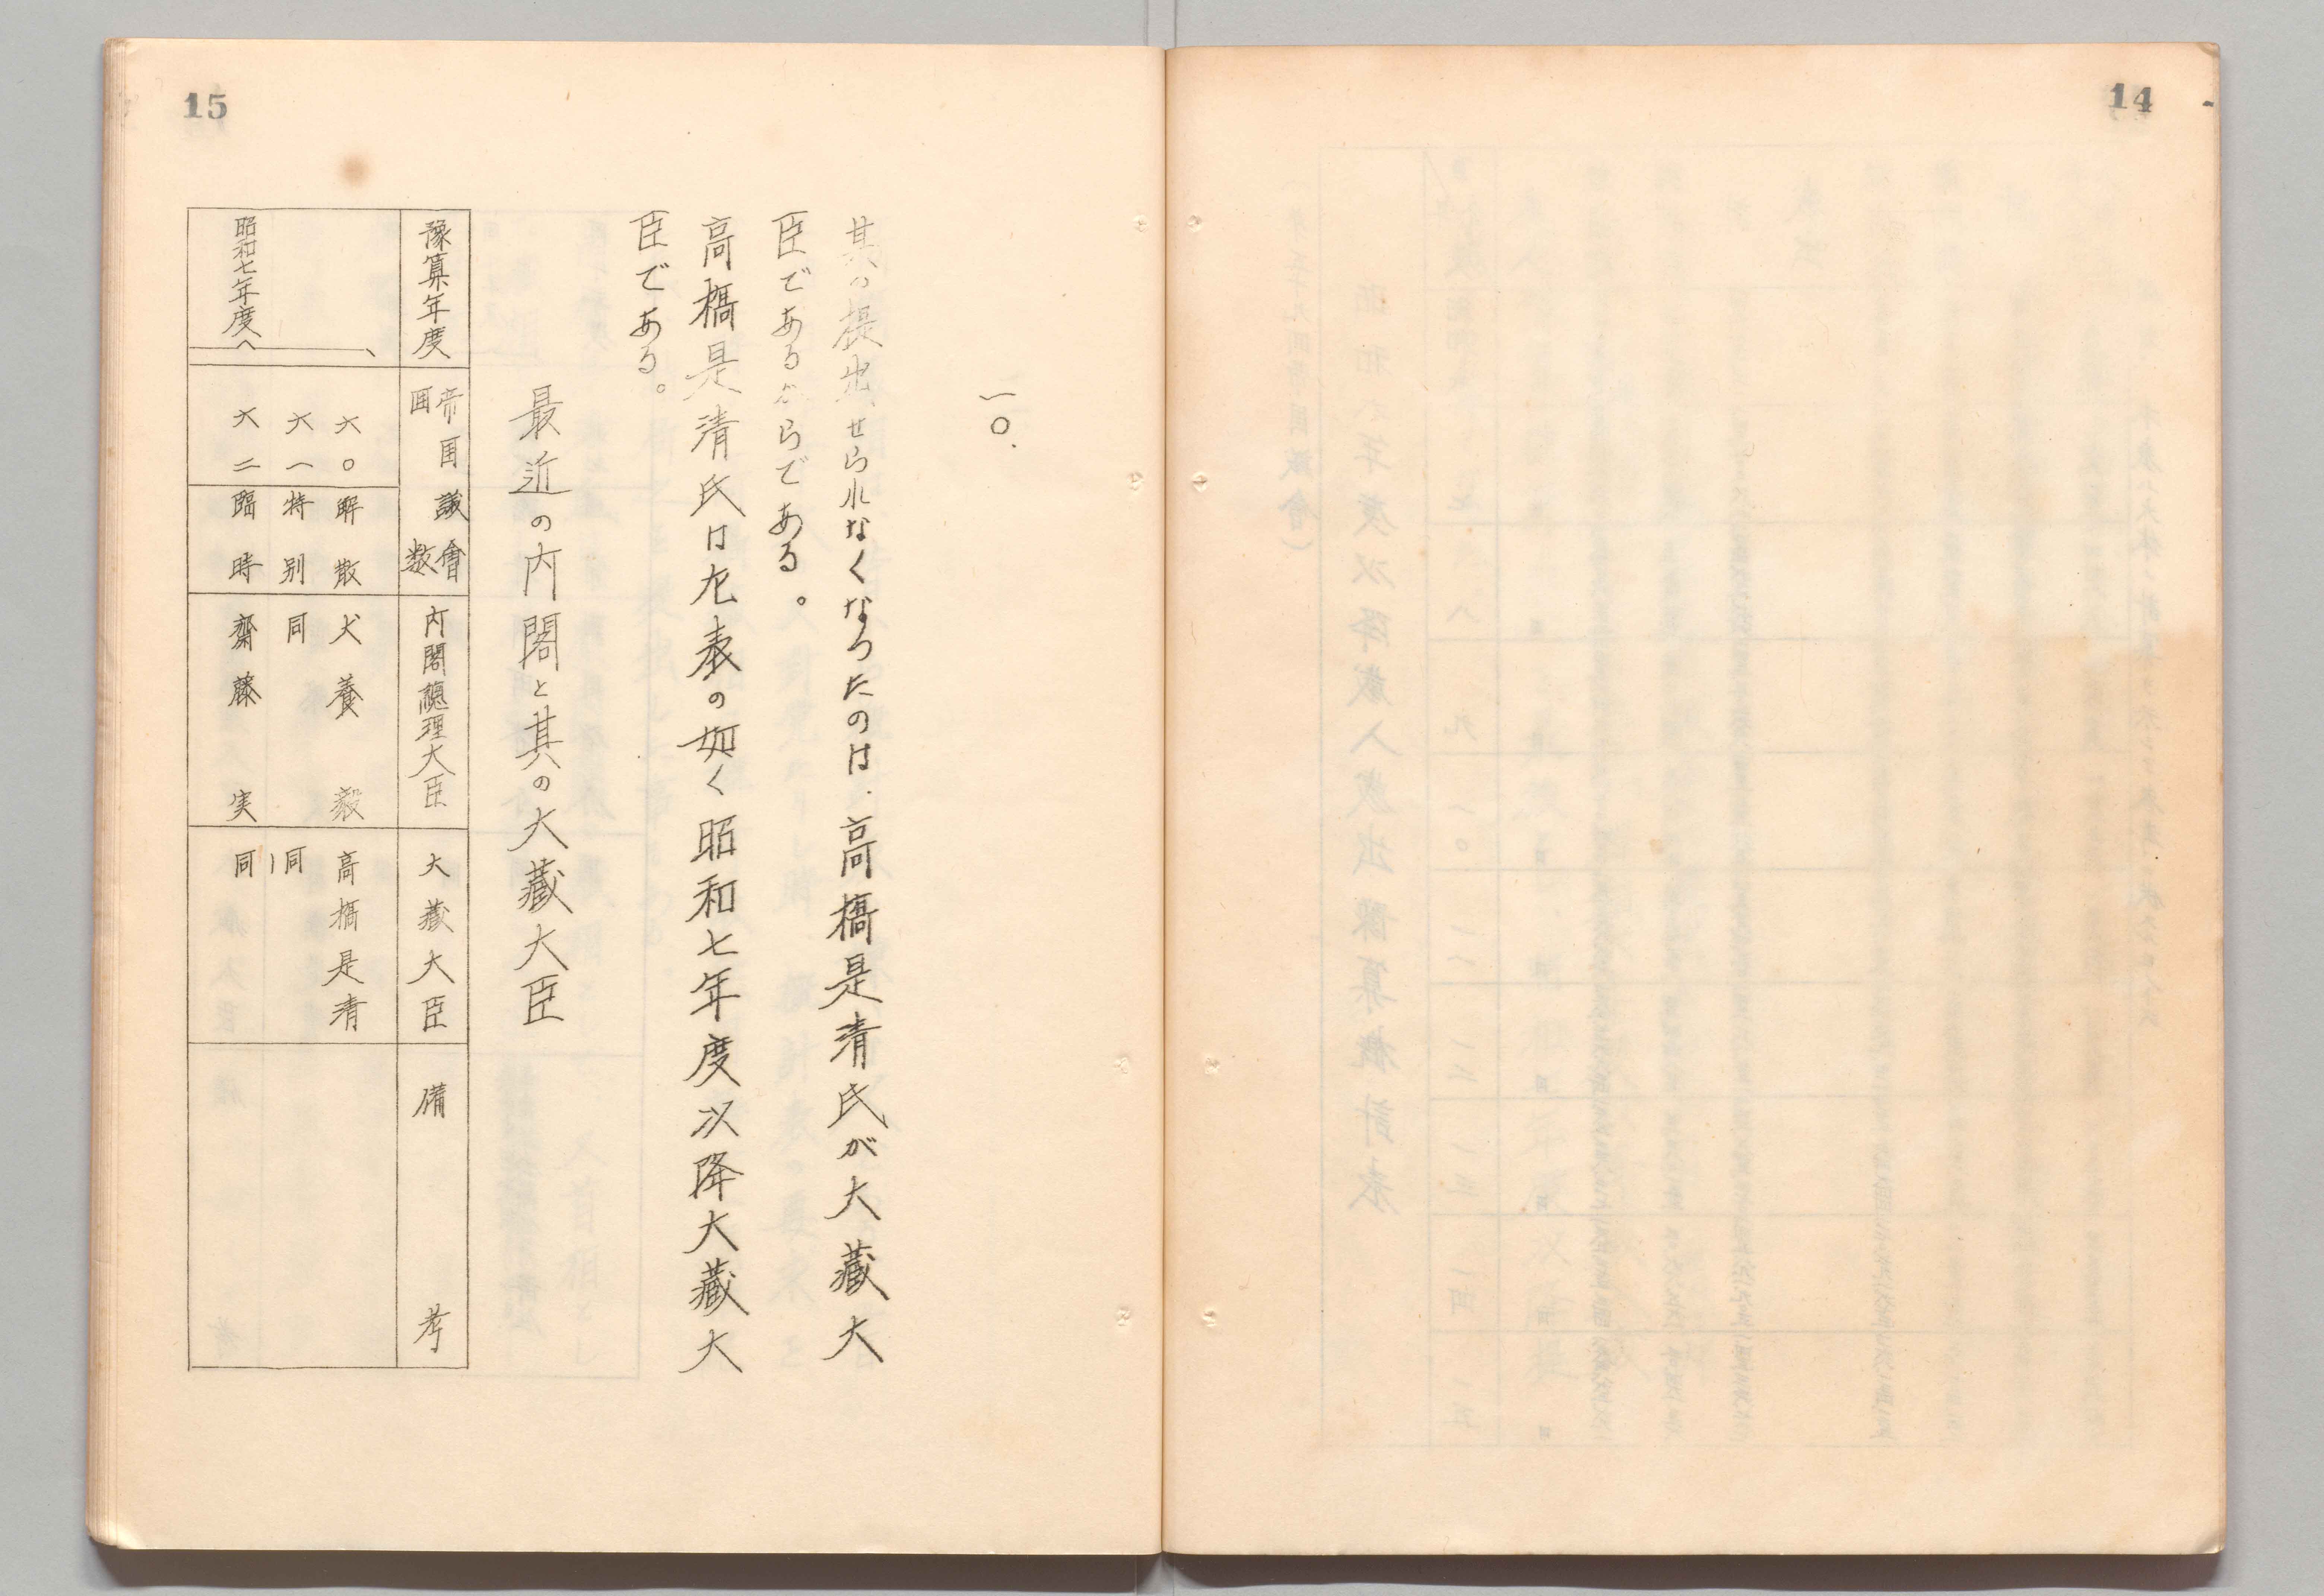 14
15
一〇.
其の提出せられなくなつたのは.高橋是清氏が大藏大
臣であるからである。
高橋是清氏は左表の如く昭和七年度以降大藏大
臣である。
最近の内閣と其の大藏大臣
豫算年度 帝国議會回数 内閣總理大臣 大藏大臣 備考
六〇 解散 犬養毅 高橋是清
六一 特別 同 同
昭和七年度へ 六二 臨時 齋藤実 同